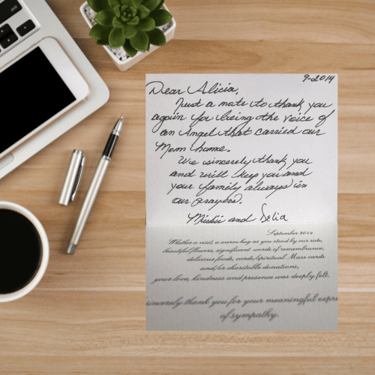 9-2014
Dear Alicia,
Just a note to thank you
again for being the voice of
an Angel that carried our
Mom home.
We sincerely thank you
and will keep you and
your family always in
our prayers.
and Delia
September 2014
Whether a visit, a warm hug as you stood by our side,
beautiful flowers, significant words of remembrance,
delicious foods, cards/spiritual Mass cards
and/or charitable donations,
your love, kindness and presence was deeply felt.
sincerely thank you for your meaningful
of sympathy.